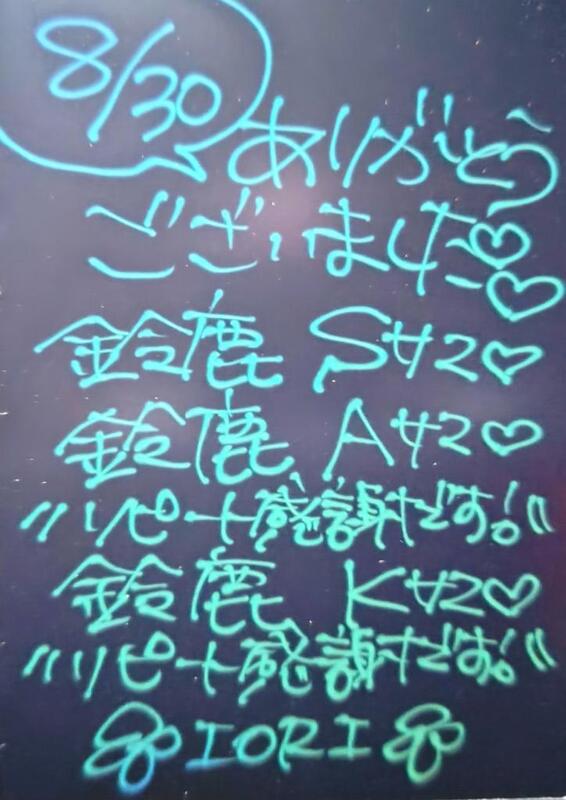 8/30
ありがとう〜
ございました♡♡
鈴鹿 Sサン♡
鈴鹿 Aサン♡
"リピート感謝です!"
鈴鹿 Kサン♡
"リピート感謝です!"
IORI